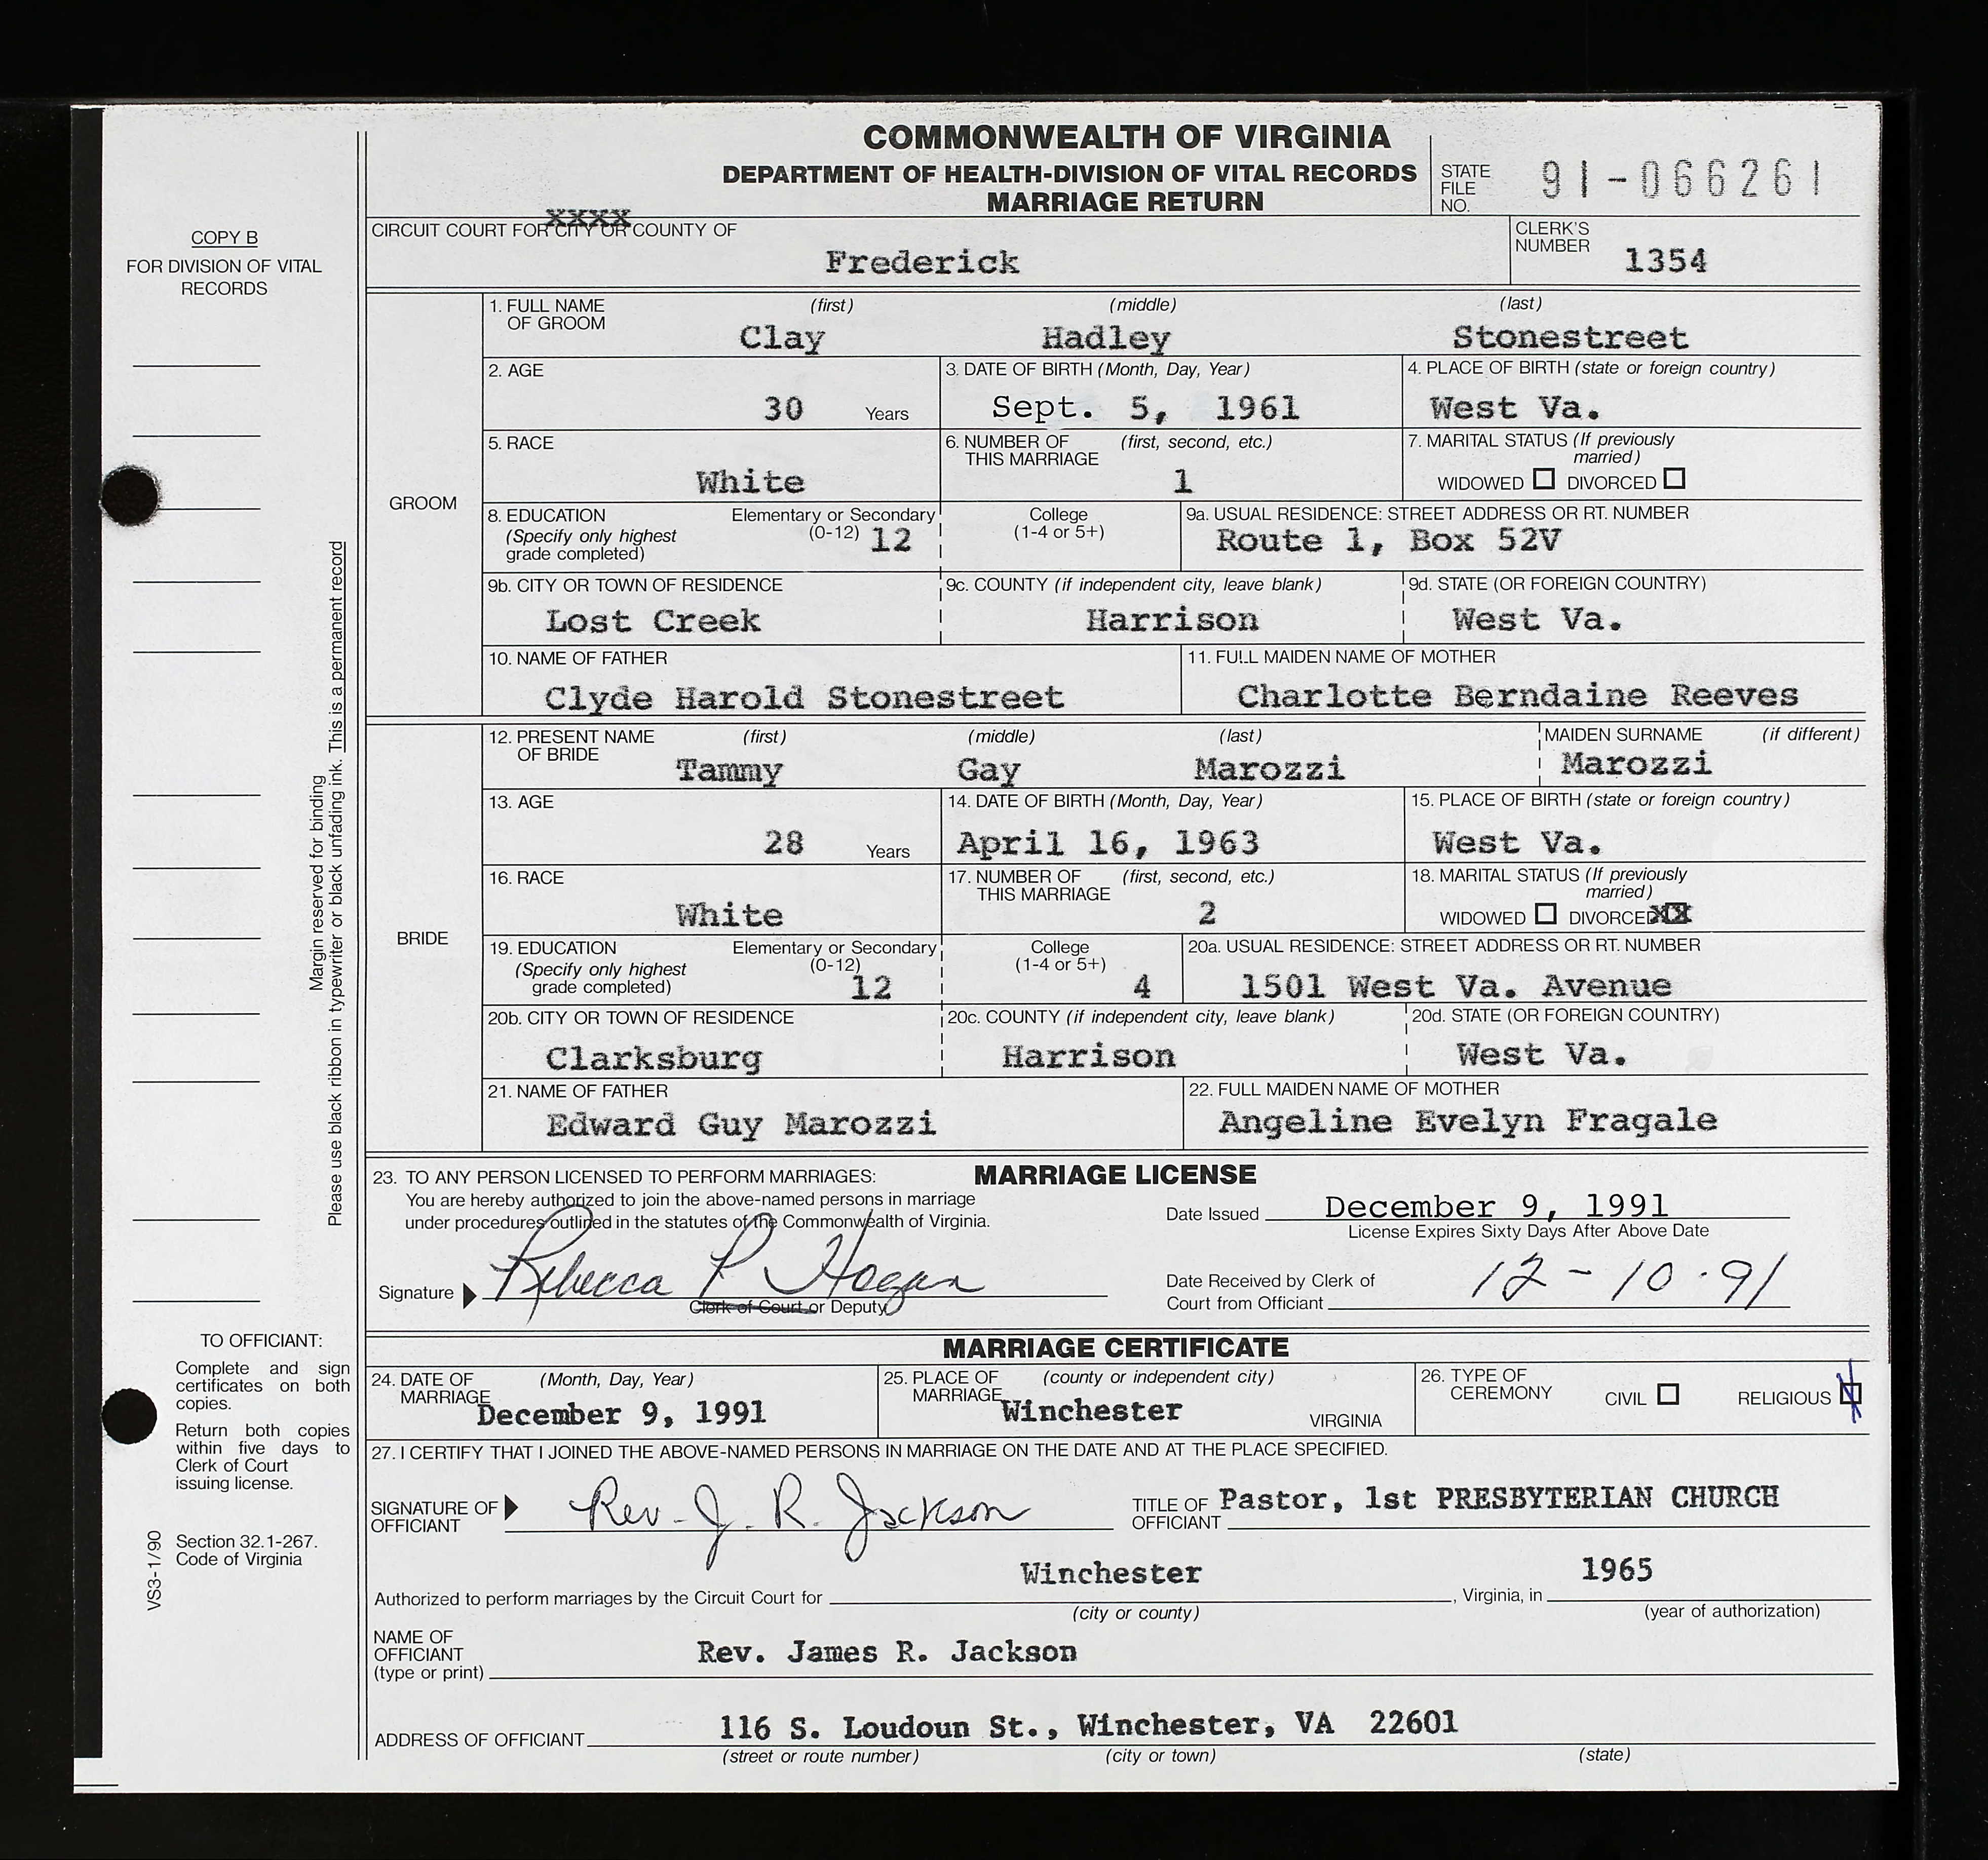 COMMONWEALTH OF VIRGINIA
DEPARTMENT OF HEALTH-DIVISION OF VITAL RECORDS
MARRIAGE RETURN
STATE FILE NO. 91-066261
COPY B
FOR DIVISION OF VITAL RECORDS
XXXX
CIRCUIT COURT FOR CITY OR COUNTY OF
Frederick
CLERK'S NUMBER 1354
GROOM
1. FULL NAME OF GROOM (first) (middle) (last)
Clay Hadley Stonestreet
2. AGE 3. DATE OF BIRTH (Month, Day, Year) 4. PLACE OF BIRTH (state or foreign country)
30 Years Sept. 5, 1961 West Va.
5. RACE 6. NUMBER OF THIS MARRIAGE (first, second, etc.) 7. MARITAL STATUS (If previously married)
White 1 WIDOWED DIVORCED
8. EDUCATION (Specify only highest grade completed) Elementary or Secondary (0-12) 12 College (1-4 or 5+) 9a. USUAL RESIDENCE: STREET ADDRESS OR RT. NUMBER
Route 1, Box 52V
9b. CITY OR TOWN OF RESIDENCE 9c. COUNTY (if independent city, leave blank) 9d. STATE (OR FOREIGN COUNTRY)
Lost Creek Harrison West Va.
10. NAME OF FATHER 11. FULL MAIDEN NAME OF MOTHER
Clyde Harold Stonestreet Charlotte Berndaine Reeves
BRIDE
12. PRESENT NAME OF BRIDE (first) (middle) (last) MAIDEN SURNAME (if different)
Tammy Gay Marozzi Marozzi
13. AGE 14. DATE OF BIRTH (Month, Day, Year) 15. PLACE OF BIRTH (state or foreign country)
28 Years April 16, 1963 West Va.
16. RACE 17. NUMBER OF THIS MARRIAGE (first, second, etc.) 18. MARITAL STATUS (If previously married)
White 2 WIDOWED DIVORCED XX
19. EDUCATION (Specify only highest grade completed) Elementary or Secondary (0-12) 12 College (1-4 or 5+) 4 20a. USUAL RESIDENCE: STREET ADDRESS OR RT. NUMBER
1501 West Va. Avenue
20b. CITY OR TOWN OF RESIDENCE 20c. COUNTY (if independent city, leave blank) 20d. STATE (OR FOREIGN COUNTRY)
Clarksburg Harrison West Va.
21. NAME OF FATHER 22. FULL MAIDEN NAME OF MOTHER
Edward Guy Marozzi Angeline Evelyn Fragale
Margin reserved for binding
Please use black ribbon in typewriter or black unfading ink. This is a permanent record
23. TO ANY PERSON LICENSED TO PERFORM MARRIAGES: MARRIAGE LICENSE
You are hereby authorized to join the above-named persons in marriage
under procedures outlined in the statutes of the Commonwealth of Virginia.
Date Issued December 9, 1991
License Expires Sixty Days After Above Date
Signature Rebecca P. Hogan
Clerk of Court or Deputy
Date Received by Clerk of
Court from Officiant 12-10-91
MARRIAGE CERTIFICATE
24. DATE OF MARRIAGE (Month, Day, Year) 25. PLACE OF MARRIAGE (county or independent city) 26. TYPE OF CEREMONY CIVIL RELIGIOUS
December 9, 1991 Winchester VIRGINIA
27. I CERTIFY THAT I JOINED THE ABOVE-NAMED PERSONS IN MARRIAGE ON THE DATE AND AT THE PLACE SPECIFIED.
SIGNATURE OF OFFICIANT Rev. J. R. Jackson TITLE OF OFFICIANT Pastor, 1st PRESBYTERIAN CHURCH
Winchester 1965
Authorized to perform marriages by the Circuit Court for , Virginia, in
(city or county) (year of authorization)
NAME OF OFFICIANT (type or print) Rev. James R. Jackson
ADDRESS OF OFFICIANT 116 S. Loudoun St., Winchester, VA 22601
(street or route number) (city or town) (state)
TO OFFICIANT:
Complete and sign
certificates on both
copies.
Return both copies
within five days to
Clerk of Court
issuing license.
Section 32.1-267.
Code of Virginia
VS3-1/90